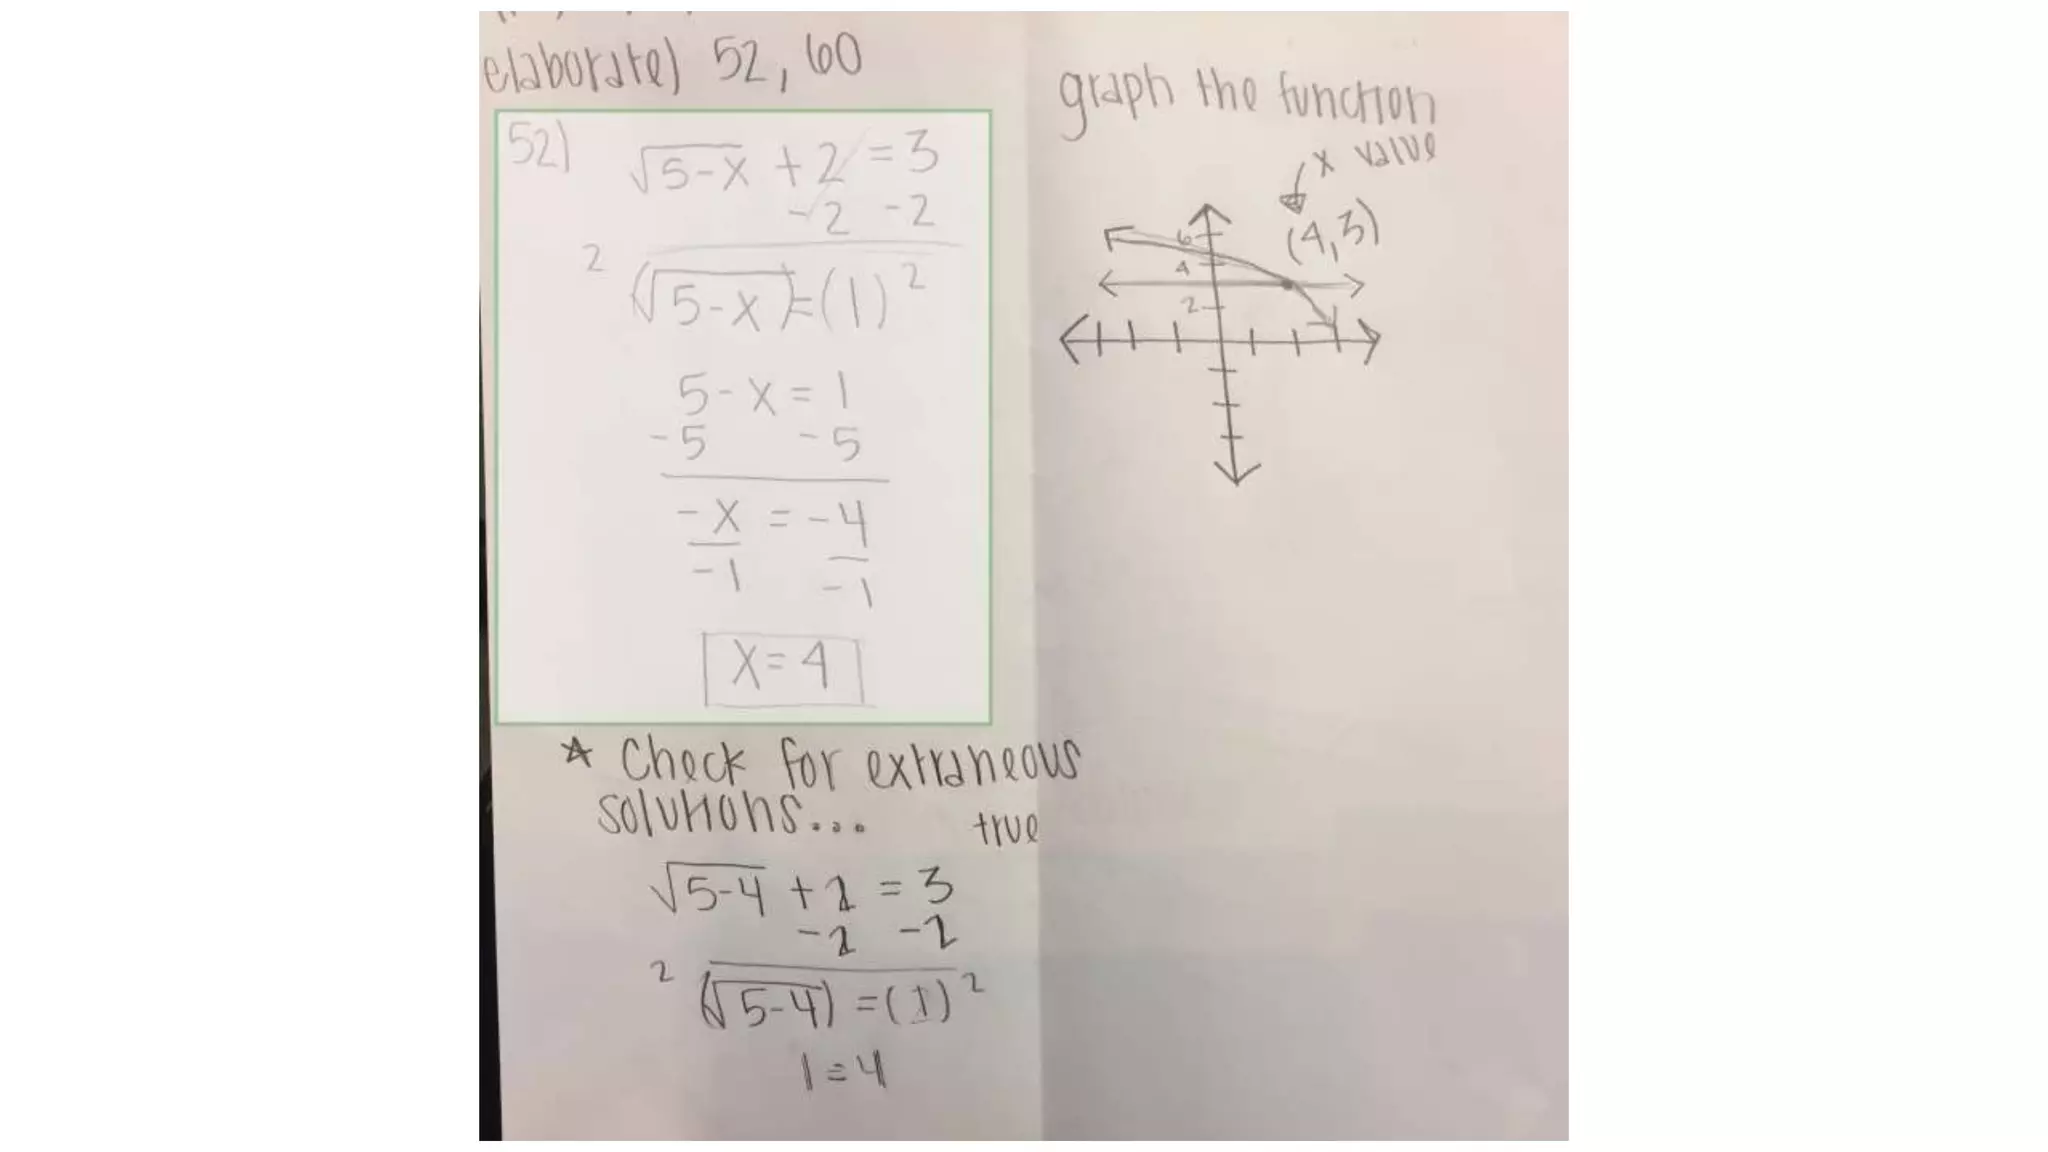 elaborate) 52, 60
52)
√5-x + 2 = 3
-2 -2
2 (√5-x) = (1) 2
5-x = 1
-5 -5
-x = -4
-1 -1
x = 4
* Check for extraneous
solutions...
true
√5-4 + 2 = 3
-2 -2
2 (√5-4) = (1) 2
1 = 4
graph the function
x value
(4,3)
6
4
2